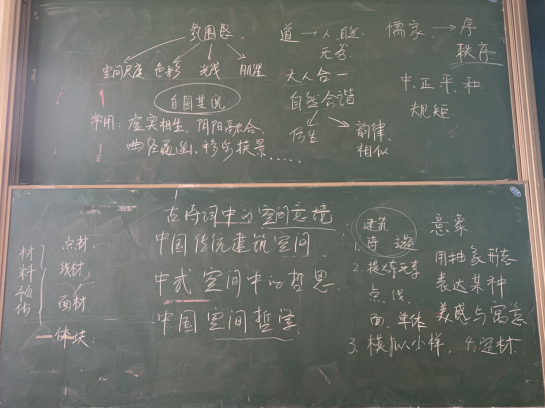 氛围感
空间尺度 色彩 光线 肌理
自圆其说
常用：虚实相生、阴阳融合、
曲径通幽、移步换景……
道→人 自然
无为
天人合一
自然合谐
仿生 韵律
相似
儒家→序
秩序
中、正、平、和
规矩
材料预估
点材
线材
面材
体块
古诗词中的空间意境
中国传统建筑空间
中式空间中的哲思
中国空间哲学
建筑
1. 诗
2. 提炼元素
点、线、
面、单体
3. 模拟小样、4. 定材
意象
用抽象形态
表达某种
美感与寓意